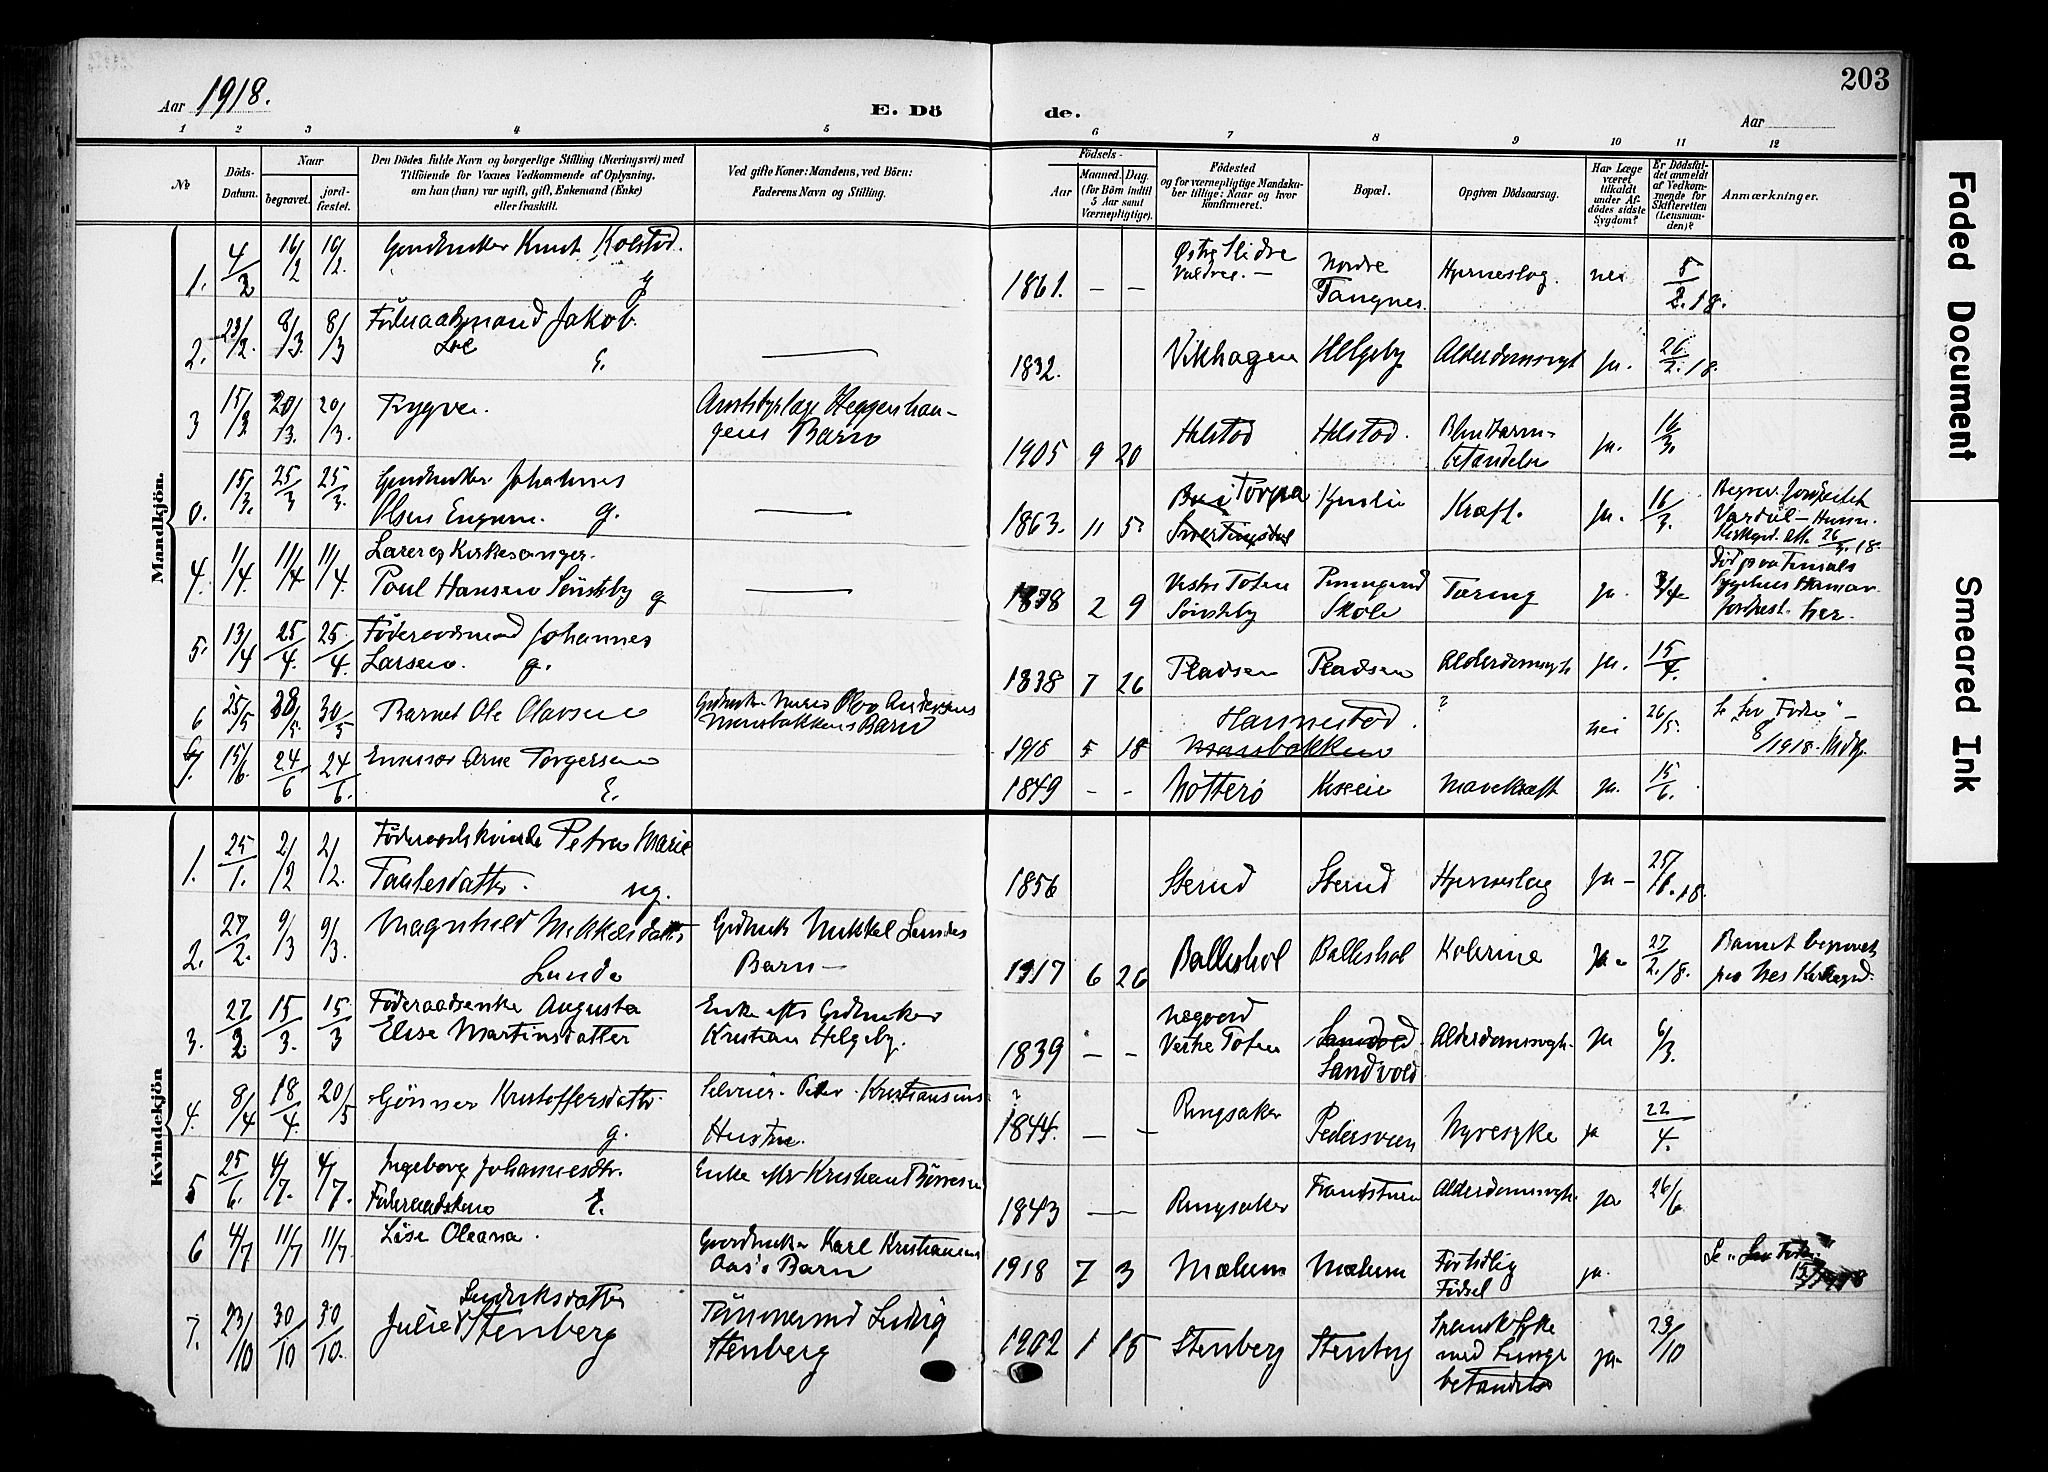 203
Aar 1918.
E. Dö
de.
Aar
1 2 3 4 5 6 7 8 9 10 11 12
No
Döds-Datum.
Naar
begravet.
jordfæstet.
Den Dödes fulde Navn og borgerlige Stilling (Næringsvei) med
Tilföiende for Voxnes Vedkommende af Oplysning,
om han (hun) var ugift, gift, Enkemand (Enke)
eller fraskilt.
Ved gifte Koner: Mandens, ved Börn:
Faderens Navn og Stilling.
Födsels-
Aar
Maaned. Dag.
(for Börn indtil
5 Aar samt
Værnepligtige).
Födested
og for værnepligtige Mandskaber tillige: Naar og hvor
konfirmeret.
Bopæl.
Opgiven Dödsaarsag.
Har Læge
været
tilkaldt
under Afdödes sidste
Sygdom?
Er Dödsfaldet anmeldt
af Vedkommende for
Skifteretten
(Lensmanden)?
Anmærkninger.
Mandkjön.
1. 4/2 16/2 16/2. Gardbruker Knut Kolstad. g 1861. – – Østre Slidre Valdres. – Nordre Tangnes. Hjerneslag. nei 5/2.18.
2. 23/2. 8/3. 8/3 Föderaadsmand Jakob E. 1832. Vikhagen Helgeby Alderdomssvagh ja. 26/2.18.
3 15/3 20/3. 20/3. Trygve. Amtsbypläge Heggenhaugens Barn 1905 9 20 Helstad Helstad. Blindtarmbetændelse ja. 16/3.
0. 15/3. 25/3 25/3. Gardbruker Johannes Olsen Engum. g. 1863. 11 5 Torpa Kjenlie Kræft. ja. 16/3. Begrav. forrettet Vardal – Hunn. Kirkegd. 26/3.18.
4. 1/4. 11/4 11/4. Lærer og Kirkesanger. Paul Hansen Sønsteby g 1838 2 9 Vestre Toten Sønsteby Skole Tæring ja. 3/4 Død paa Sygehus Hamar jordfæst. her.
5. 13/4 25/4. 25/4. Föderaadsmand Johannes Larsen. g. 1838 7 26 Pladsen Pladsen Alderdomssvagh ja. 15/4.
6 25/5 30/5. 30/5 Barnet Ole Olavsen Olav Andersens Monsbakkens Barn 1918 5 18 Hannestad. Monsbakken ? nei 26/5. Se "Lev. Fødte" – 8/1918. Mdkj.
7. 15/6. 24/6 24/6. Arne Torgersen E. 1849 – – Nøtterø Mavekræft ja. 15/6.
Kvindekjön
1. 25/1. 2/2 2/2. Föderaadskvinde Petra Marie ug. 1856 Sterud Sterud Hjerneslag ja – 25/1.18.
2. 27/2. 9/3 9/3. Magnhild Mikkelsdatter Lunde Gardbruk Mikkel Lundes Barn – 1917 6 26 Balleshol Balleshol Kolerine ja. 27/2.18. Barnet begravet paa Nes Kirkegd.
3. 27/2. 15/3. 15/3 Föderaadsenke Augusta Elise Martinsdatter Enke efter Gardbruker Kristian Helgeby. 1839 – – Vestre Toten Sandvold. Sandvold Alderdomssvagh. ja 6/3.
4. 8/4 18/4. 20/5 Gönner Kristoffersdatter g. Selveier Peder Kristiansens Hustru. ? 1844. – – Ringsaker Pedersveen Nyresyke ja 22/4.
5 25/6. 4/7. 4/7. Ingeborg Johannesdtr. Föderaadskone E. Enke efter Kristian Børresen 1843 – – Ringsaker Alderdomssvagh. ja 26/6
6 4/7 11/7 11/7. Lise Oleana. Gardbruker Karl Kristiansen Aas's Barn 1918 7 3 Mælum Mælum Fortidlig Födsel ja. Se "Lev. Fødte"
7. 23/10 30/10 30/10. Julie Ludviksdatter Stenberg Tømmermd Ludvig Stenberg 1902 1 15 Stenberg Stenberg Spansksyke med Lungebetændelse ja. 23/10
Faded Document
Smeared Ink